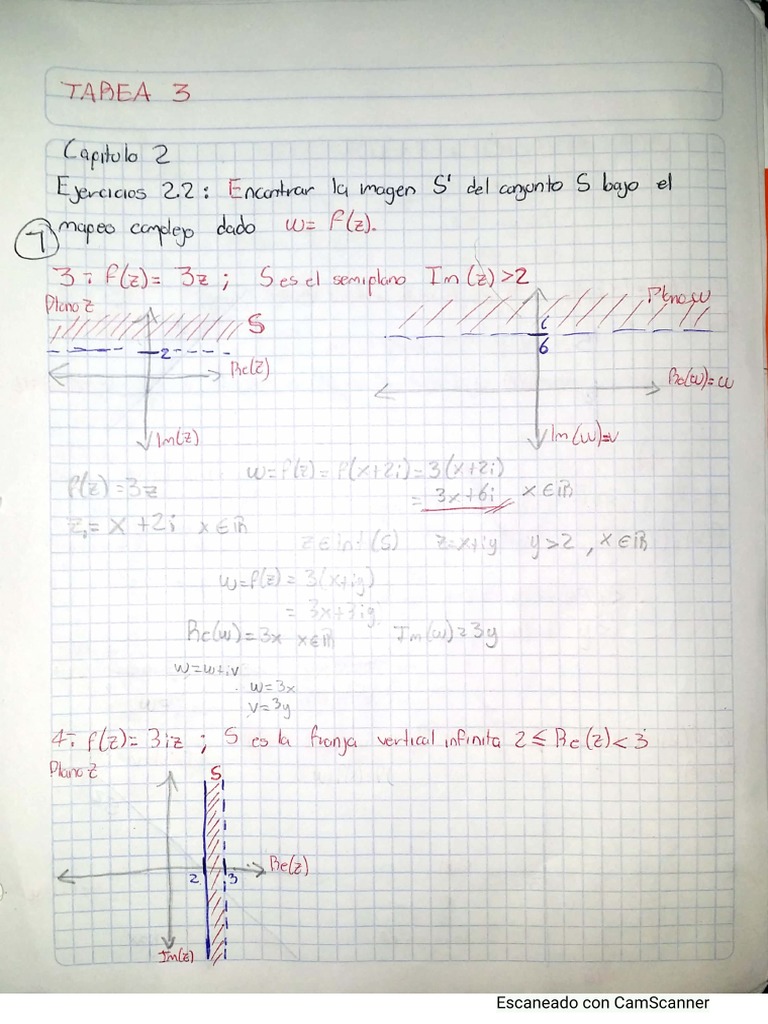 TAREA 3
Capitulo 2
Ejercicios 2.2: Encontrar la imagen S' del conjunto S bajo el
mapeo complejo dado w= f(z).
3-. f(z)= 3z ; S es el semiplano Im(z)>2
Plano z
S
2
Re(z)
Im(z)
Plano w
6
Re(w)=u
Im(w)=v
f(z)=3z
w=f(z)=f(x+2i)=3(x+2i)
= 3x+6i, x∈ℝ
z₁= x+2i x∈ℝ
z∈int(S) z=x+iy y>2 , x∈ℝ
w=f(z)= 3(x+iy)
= 3x+3iy
Re(w)=3x x∈ℝ Im(w)=3y
w=u+iv
u=3x
v=3y
4-. f(z)= 3iz ; S es la franja vertical infinita 2≤Re(z)<3
Plano z
S
Re(z)
2 3
Im(z)
Escaneado con CamScanner